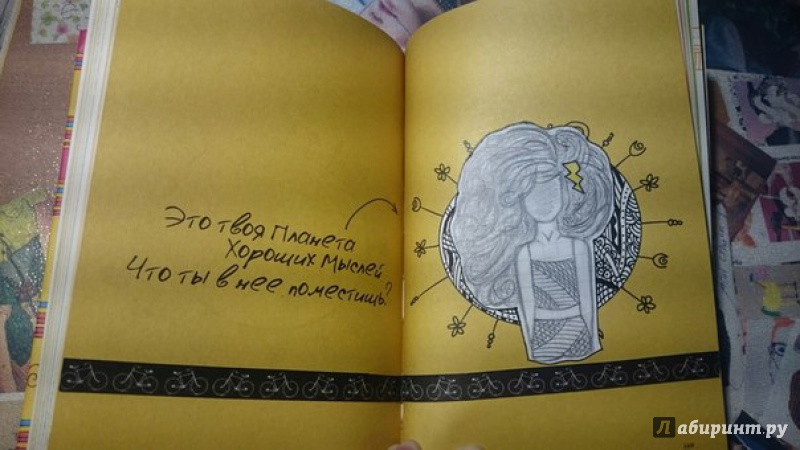 Это твоя Планета
Хороших Мыслей
Что ты в нее поместишь?
Лабиринт.ру